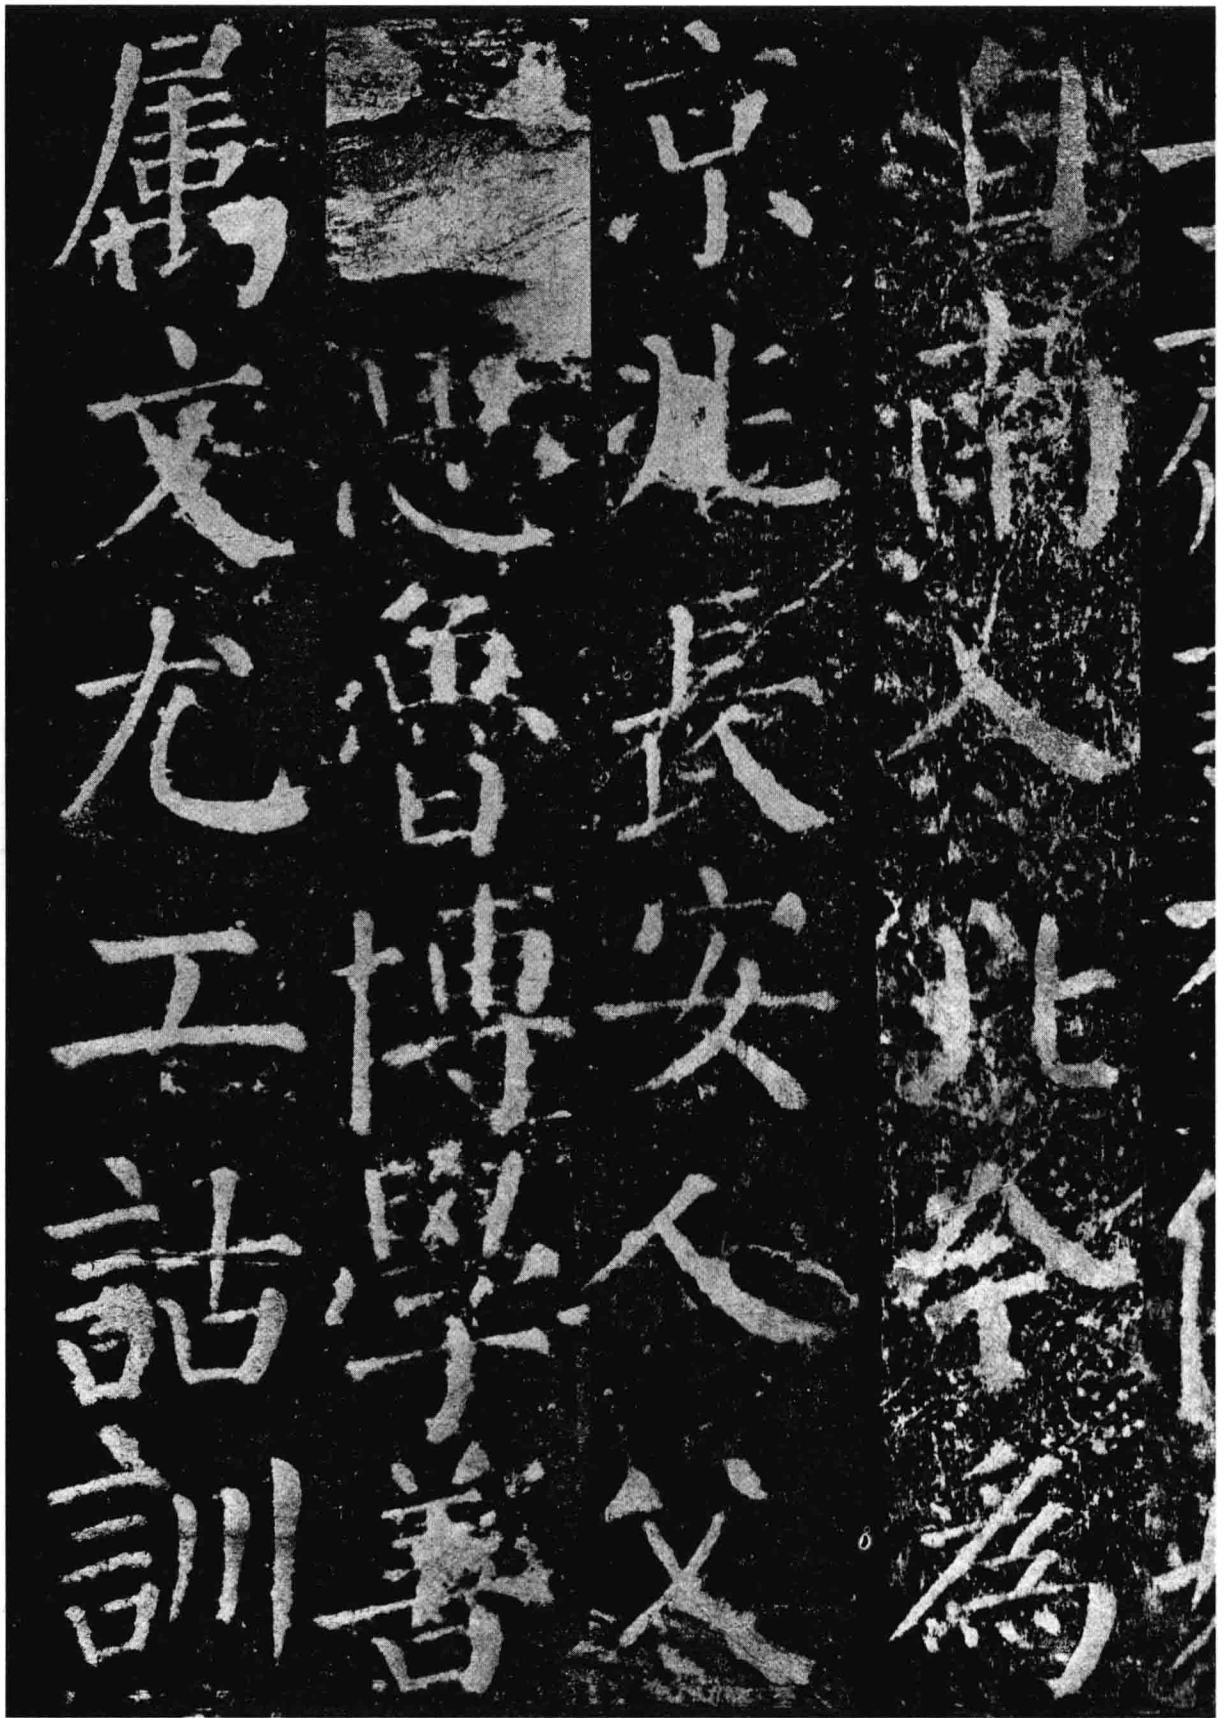 自南入北今為
京兆長安人父
思魯博學善
属文尤工詁訓